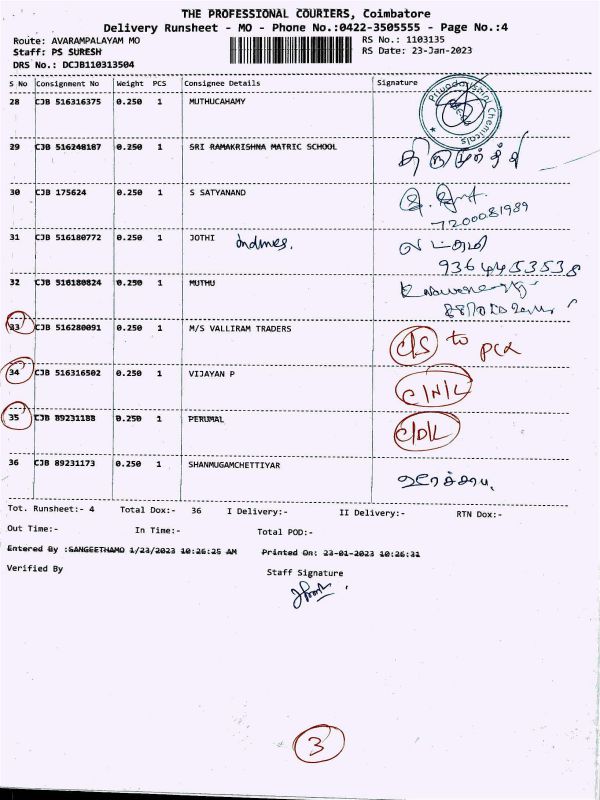 THE PROFESSIONAL COURIERS, Coimbatore
Delivery Runsheet - MO - Phone No.:0422-3505555 - Page No.:4
Route: AVARAMPALAYAM MO
RS No.: 1103135
Staff: PS SURESH
RS Date: 23-Jan-2023
DRS No.: DCJB110313504
S No Consignment No Weight PCS Consignee Details Signature
28 CJB 516316375 0.250 1 MUTHUCAHAMY
Priyadarshini Chemicals
29 CJB 516248187 0.250 1 SRI RAMAKRISHNA MATRIC SCHOOL
30 CJB 175624 0.250 1 S SATYANAND
7200081989
31 CJB 516180772 0.250 1 JOTHI
9364453538
32 CJB 516180824 0.250 1 MUTHU
33 CJB 516280091 0.250 1 M/S VALLIRAM TRADERS C/S to
34 CJB 516316502 0.250 1 VIJAYAN P C/N/L
35 CJB 89231188 0.250 1 PERUMAL C/D/L
36 CJB 89231173 0.250 1 SHANMUGAMCHETTIYAR
Tot. Runsheet:- 4 Total Dox:- 36 I Delivery:- II Delivery:- RTN Dox:-
Out Time:- In Time:- Total POD:-
Entered By :SANGEETHAMO 1/23/2023 10:26:25 AM Printed On: 23-01-2023 10:26:31
Verified By Staff Signature
3